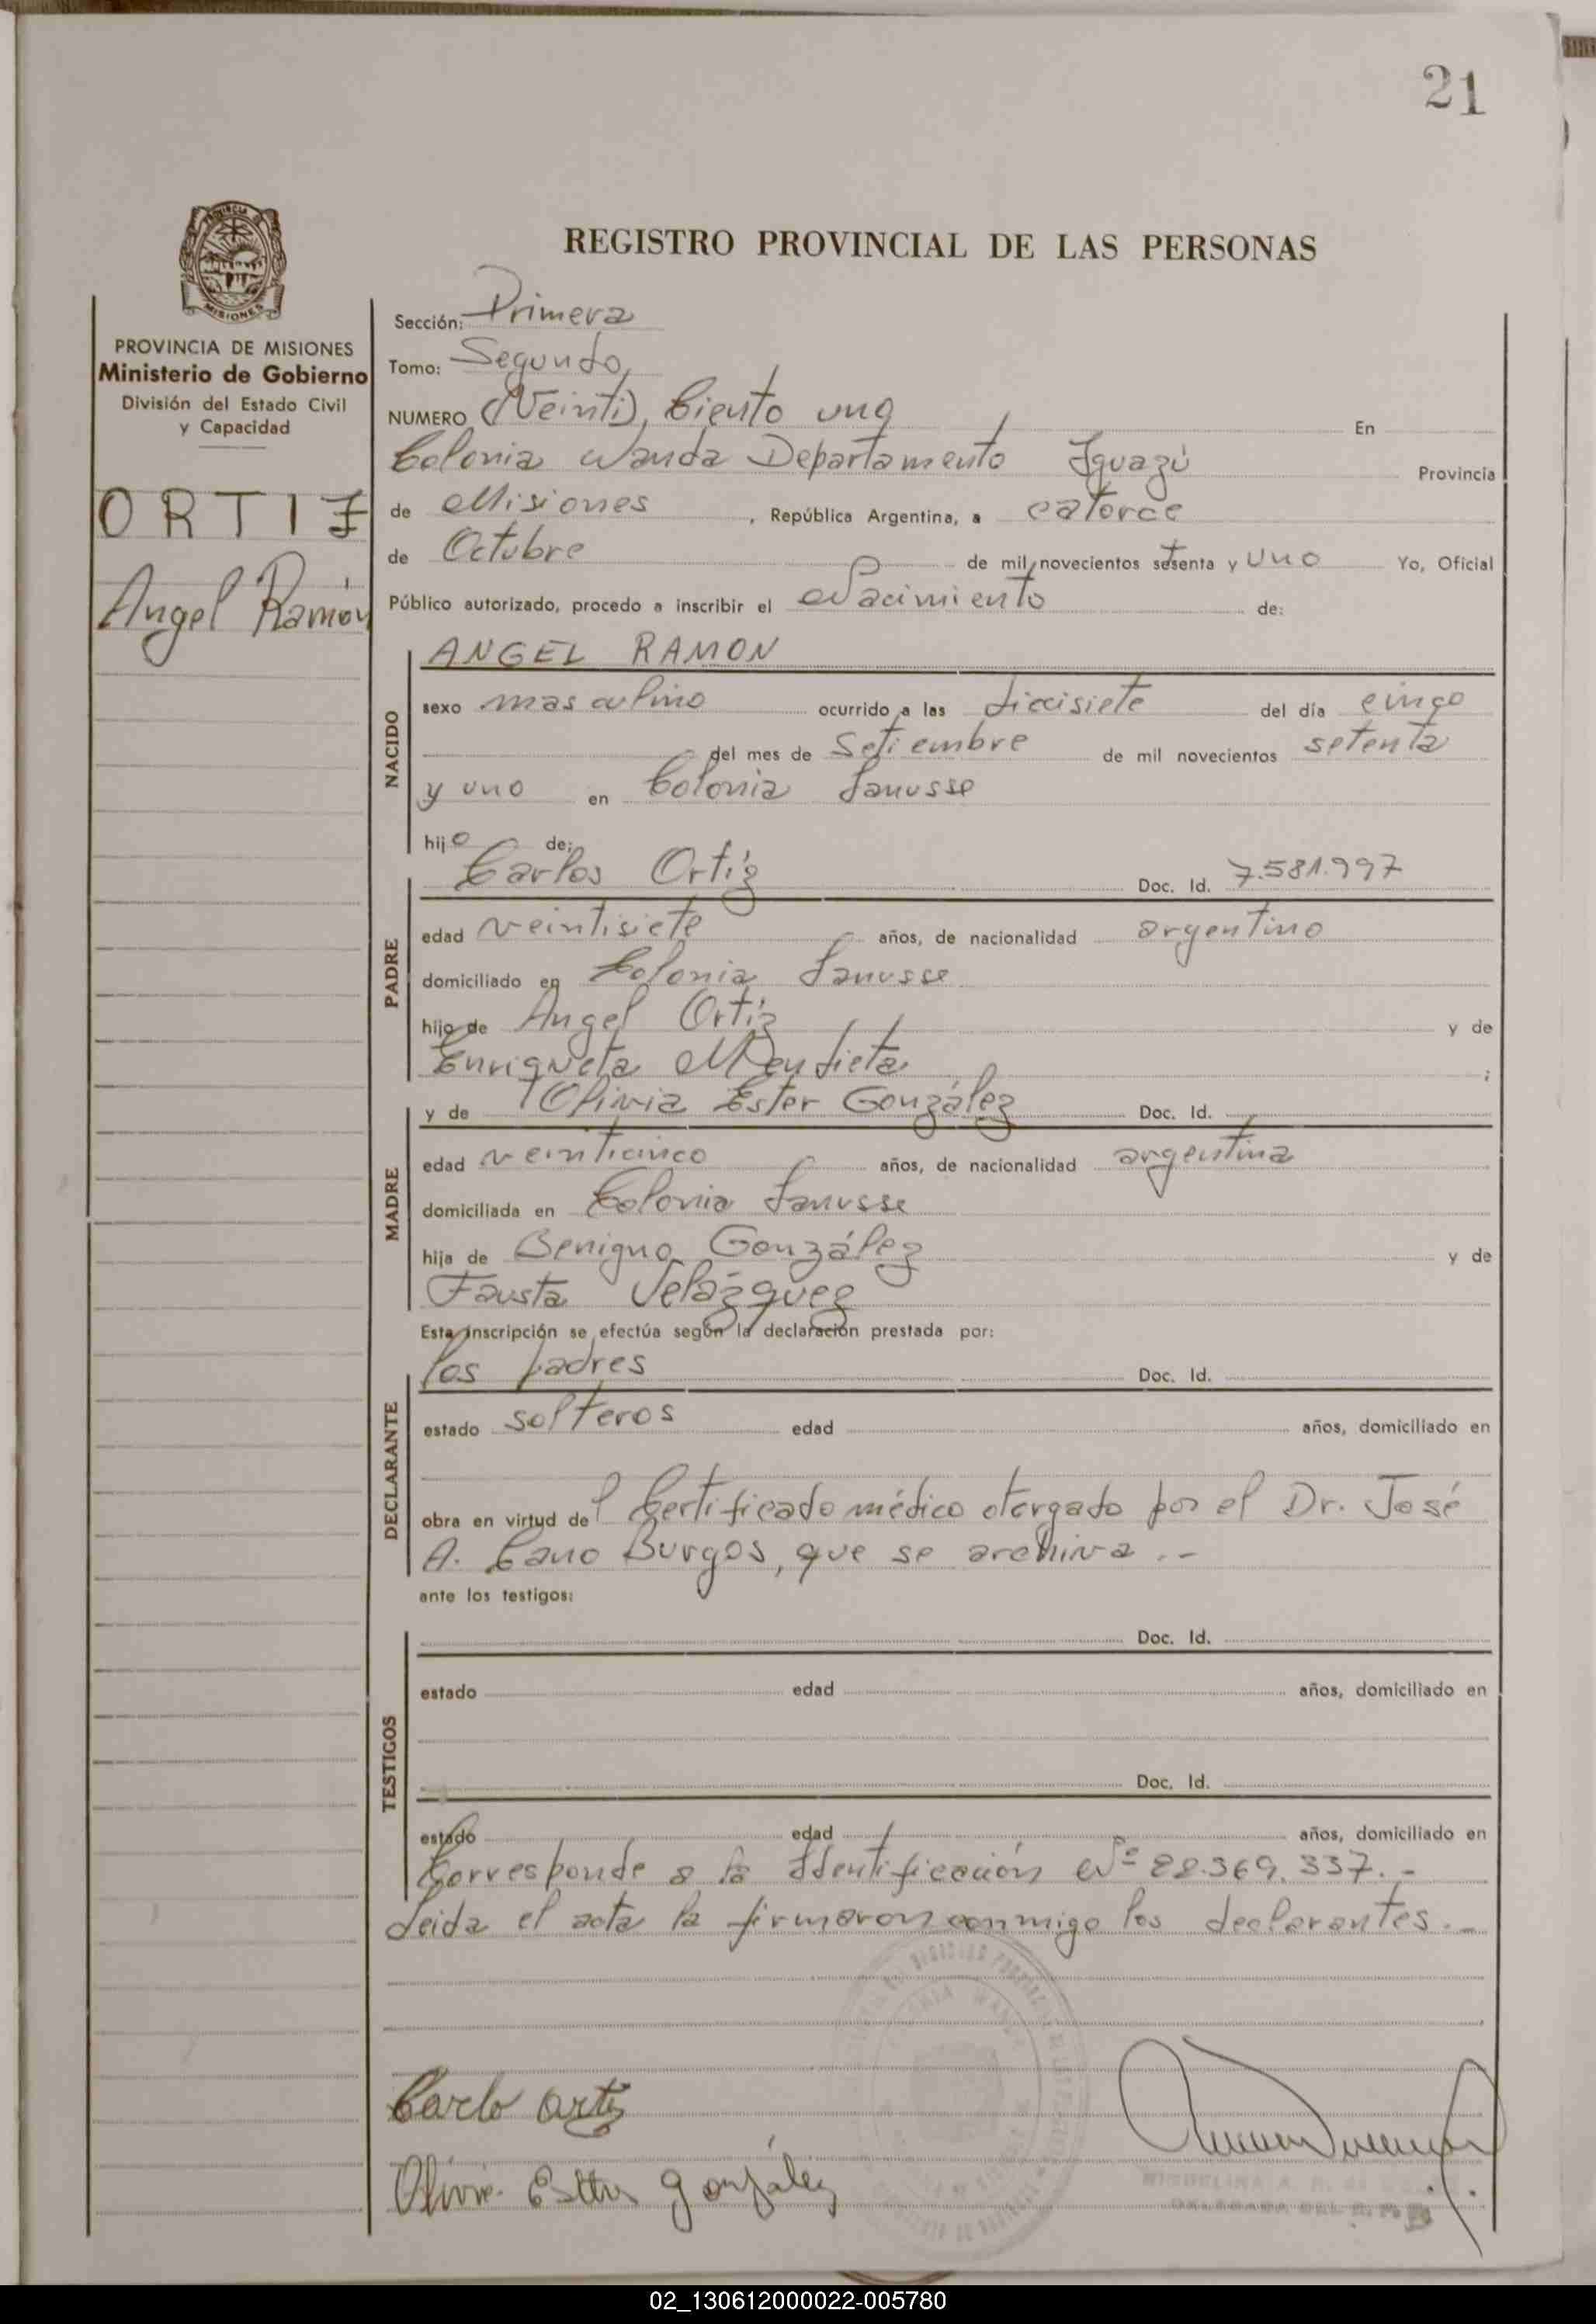 21
REGISTRO PROVINCIAL DE LAS PERSONAS
PROVINCIA DE MISIONES
Ministerio de Gobierno
División del Estado Civil
y Capacidad
ORTIZ
Angel Ramón
Sección: Primera
Tomo: Segundo
NUMERO (Veinti), Ciento uno En
Colonia Wanda Departamento Iguazú Provincia
de Misiones, República Argentina, a catorce
de Octubre de mil novecientos setenta y uno Yo, Oficial
Público autorizado, procedo a inscribir el Nacimiento de:
NACIDO
ANGEL RAMON
sexo masculino ocurrido a las diecisiete del día cinco
del mes de Setiembre de mil novecientos setenta
y uno en Colonia Lanusse
hijo de:
PADRE
Carlos Ortiz Doc. Id. 7.581.997
edad veintisiete años, de nacionalidad argentino
domiciliado en Colonia Lanusse
hijo de Angel Ortiz y de
Enriqueta Mendieta;
MADRE
y de Olivia Ester González Doc. Id.
edad veinticinco años, de nacionalidad argentina
domiciliada en Colonia Lanusse
hija de Benigno González y de
Fausta Velázquez
Esta inscripción se efectúa según la declaración prestada por:
DECLARANTE
los padres Doc. Id.
estado solteros edad años, domiciliado en
obra en virtud del Certificado médico otorgado por el Dr. José
A. Cano Burgos, que se archiva.-
ante los testigos:
TESTIGOS
Doc. Id.
estado edad años, domiciliado en
Doc. Id.
estado edad años, domiciliado en
Corresponde a la Identificación Nº 22.369.337.-
Leida el acta la firmaron conmigo los declarantes.-
Carlo Ortiz
Olivia Ester González
02_130612000022-005780